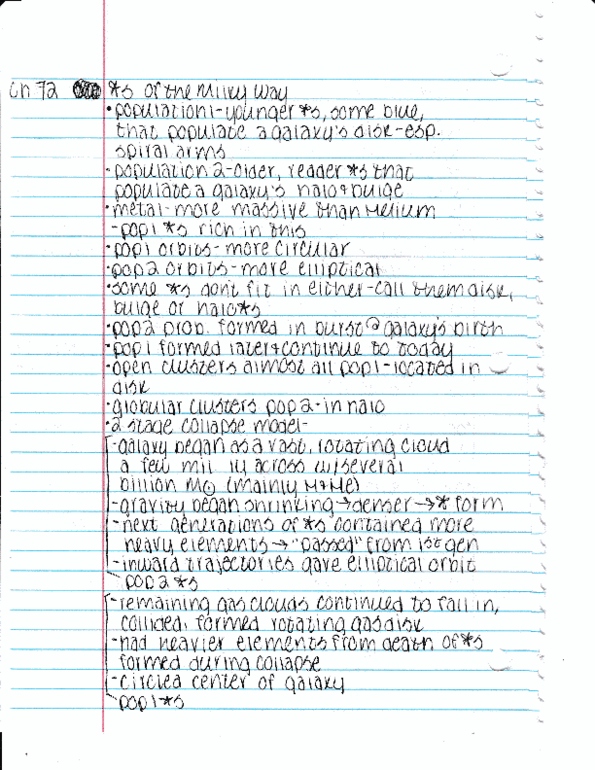 Ch 72 *s of the Milky Way
•population 1-younger *s, some blue,
that populate a galaxy's disk-esp.
spiral arms
•population 2-older, redder *s that
populate a galaxy's halo+bulge
•metal-more massive than Helium
-pop1 *s rich in this
•pop1 orbits-more circular
•pop2 orbits-more elliptical
•some *s don't fit in either-call them disk,
bulge or halo *s
•pop2 prob. formed in burst @ galaxy's birth
•pop1 formed later+continue to today
•open clusters almost all pop1-located in
disk
•globular clusters pop2-in halo
•2 stage collapse model-
-galaxy began as a vast, rotating cloud
a few mil ly across w/several
billion M☉ (mainly H+He)
-gravity began shrinking→denser→* form
-next generations of *s contained more
heavy elements→"passed" from 1st gen
-inward trajectories gave elliptical orbit
pop2 *s
-remaining gas clouds continued to fall in,
collided, formed rotating gas disk
-had heavier elements from death of *s
formed during collapse
-circled center of galaxy
pop1 *s